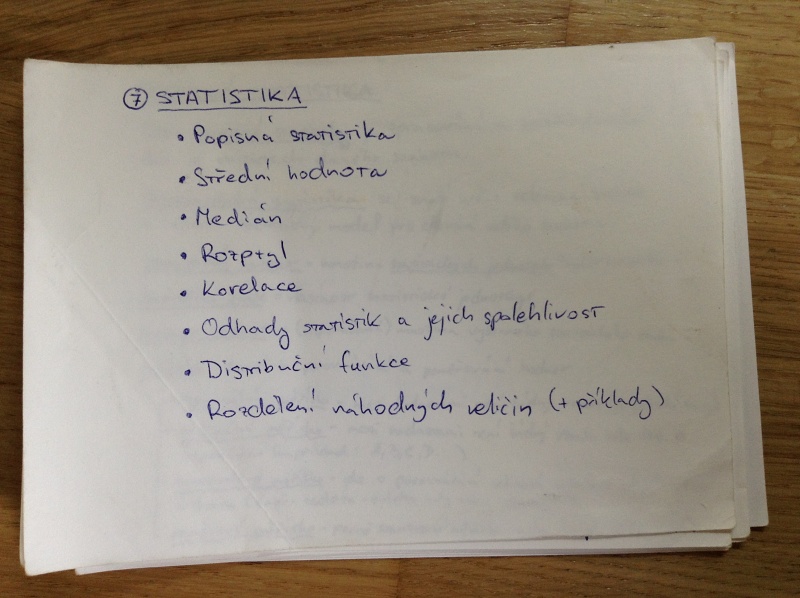 ⑦ STATISTIKA
• Popisná statistika
• Střední hodnota
• Medián
• Rozptyl
• Korelace
• Odhady statistik a jejich spolehlivost
• Distribuční funkce
• Rozdělení náhodných veličin (+ příklady)